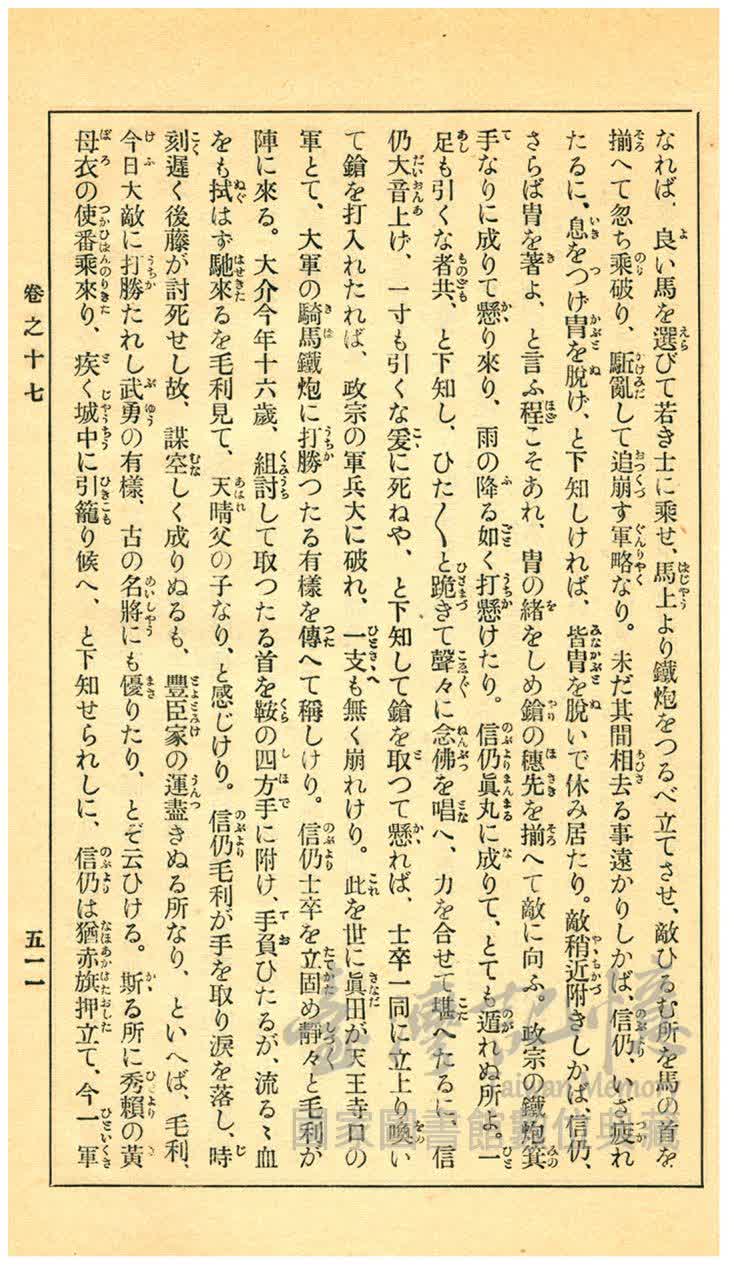 なれば、良い馬を選びて若き士に乘せ、馬上より鐵炮をつるべ立てさせ、敵ひるむ所を馬の首を
揃へて忽ち乘破り、駈亂して追崩す軍略なり。未だ其間相去る事遠かりしかば、信仍、いざ疲れ
たるに、息をつげ冑を脱げ、と下知しければ、皆冑を脱いで休み居たり。敵稍近附きしかば、信仍、
さらば冑を著よ、と言ふ程こそあれ、冑の緒をしめ鎗の穗先を揃へて敵に向ふ。政宗の鐵炮箕
手なりに成りて懸り來り、雨の降る如く打懸けたり。信仍眞丸に成りて、とても遁れぬ所よ。一
足も引くな者共、と下知し、ひた〱と跪きて聲々に念佛を唱へ、力を合せて堪へたるに、信
仍大音上げ、一寸も引くな爰に死ねや、と下知して鎗を取つて懸れば、士卒一同に立上り喚い
て鎗を打入れたれば、政宗の軍兵大に破れ、一支も無く崩れけり。此を世に眞田が天王寺口の
軍とて、大軍の騎馬鐵炮に打勝つたる有樣を傳へて稱しけり。信仍士卒を立固め靜々と毛利が
陣に來る。大介今年十六歲、組討して取つたる首を鞍の四方手に附け、手負ひたるが、流るゝ血
をも拭はず馳來るを毛利見て、天晴父の子なり、と感じけり。信仍毛利が手を取り涙を落し、時
刻遲く後藤が討死せし故、謀空しく成りぬるも、豐臣家の運盡きぬる所なり、といへば、毛利、
今日大敵に打勝たれし武勇の有樣、古の名將にも優りたり、とぞ云ひける。斯る所に秀賴の黃
母衣の使番乘來り、疾く城中に引籠り候へ、と下知せられしに、信仍は猶赤旗押立て、今一軍
卷之十七
五一一
臺灣記憶
Taiwan Memory
國家圖書館數位典藏